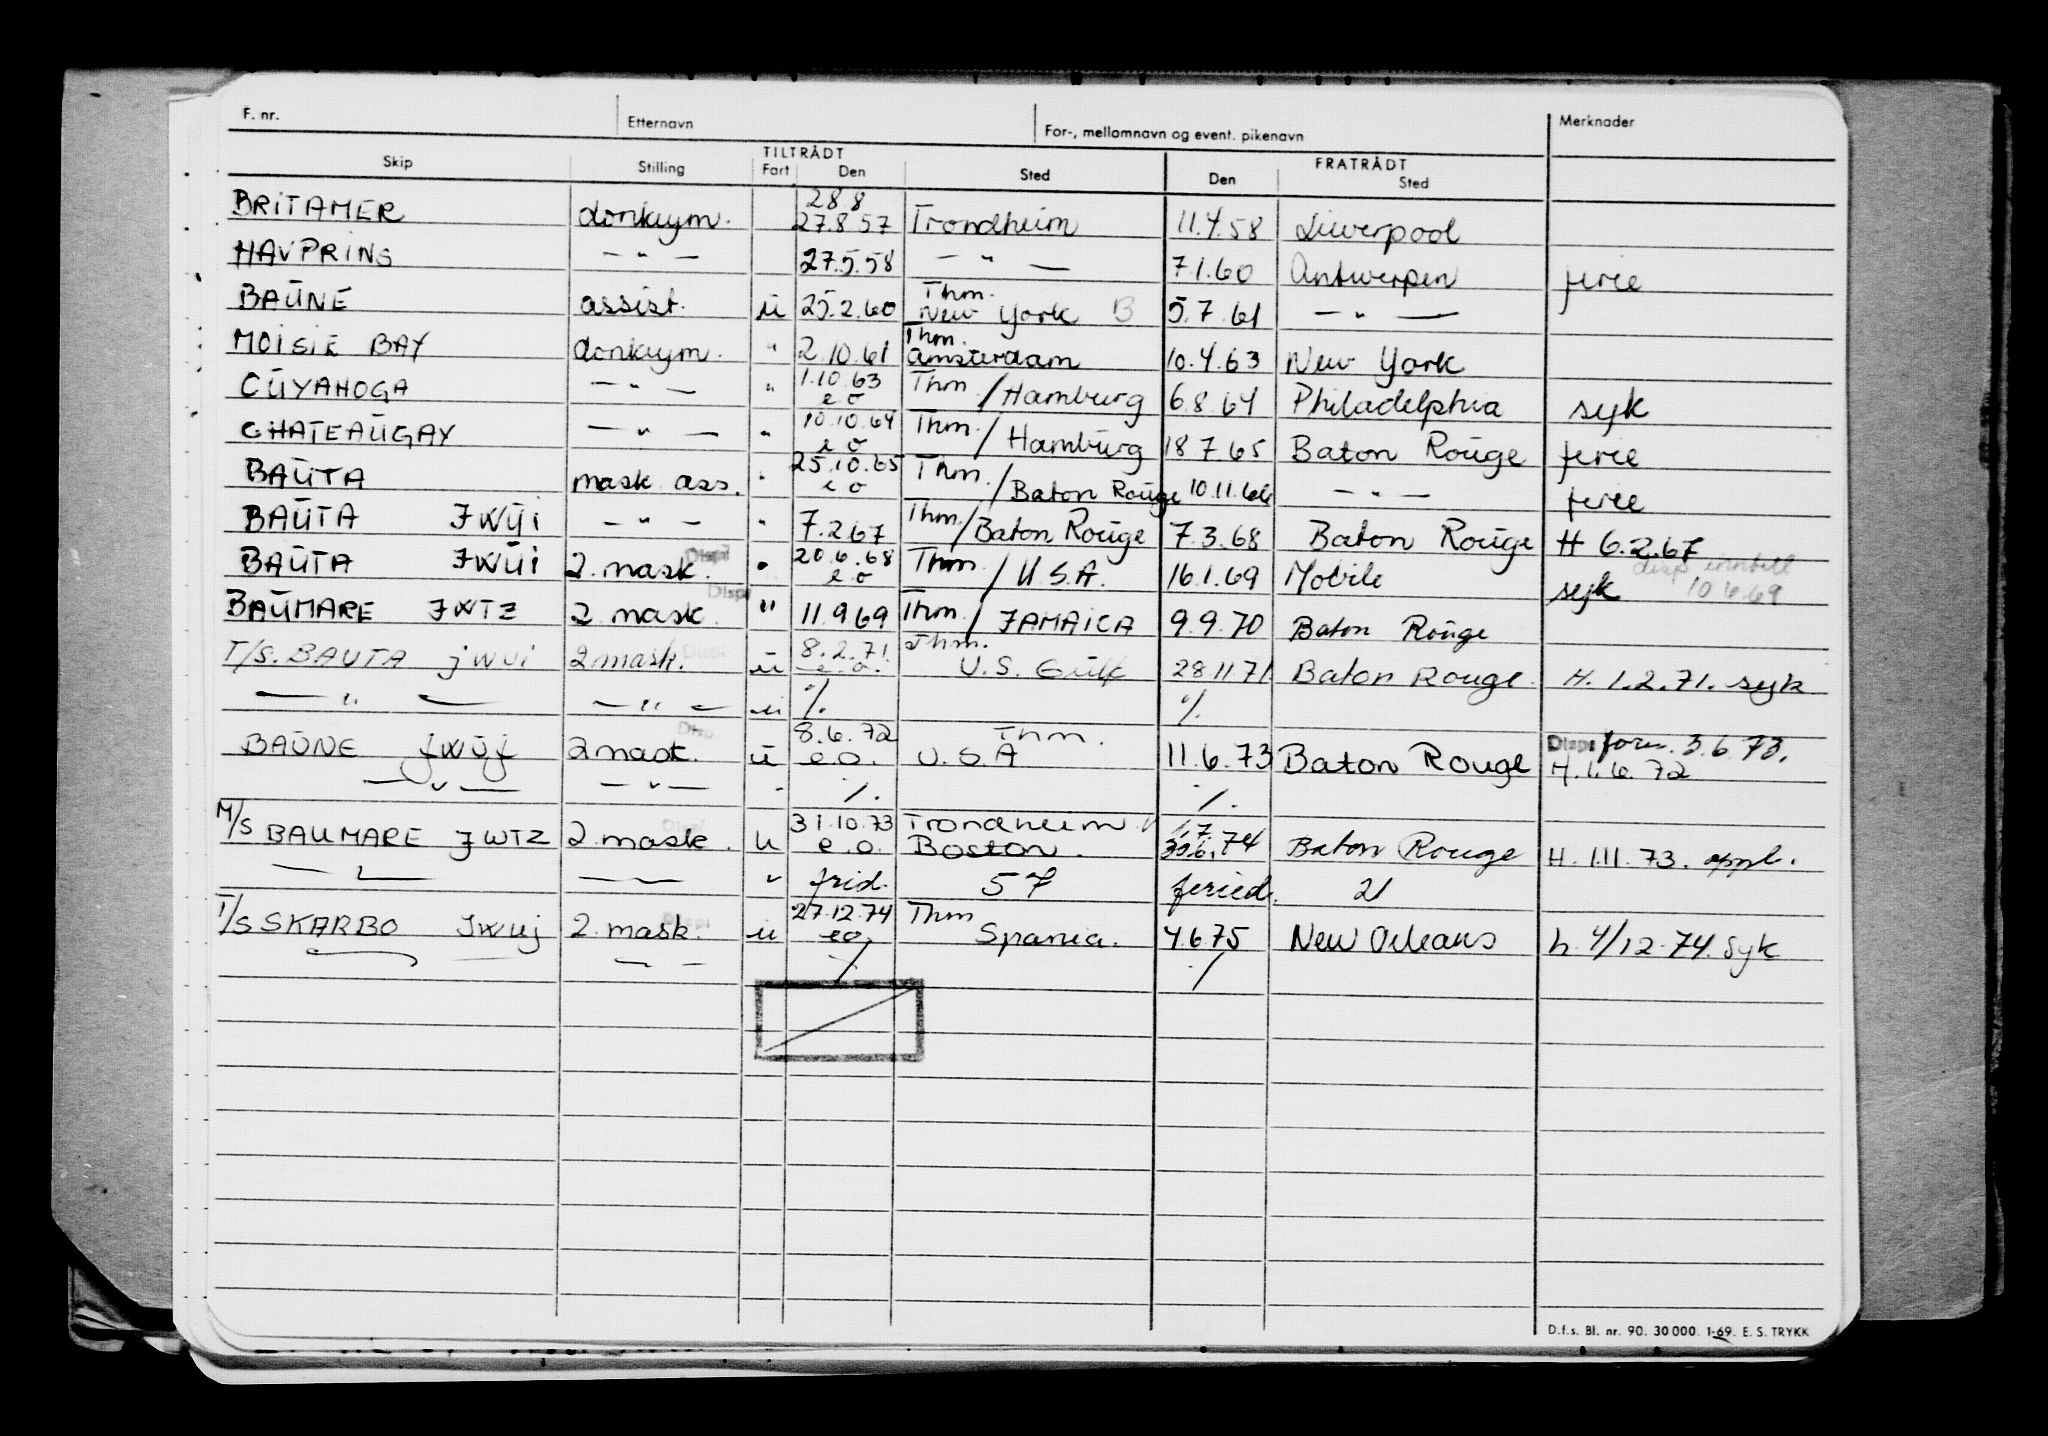 F. nr. Etternavn For-, mellomnavn og event. pikenavn Merknader
TILTRÅDT FRATRÅDT
Skip Stilling Fart Den Sted Den Sted
28.8
BRITAMER donkym. 27.8 57 Trondheim 11.4.58 Liverpool
HAVPRINS — " — 27.5.58 — " — 7.1.60 Antwerpen ferie
Thm.
BAŪNE assist. ū 25.2.60 New York B 5.7.61 — " —
Thm.
MOISIE BAY donkym. " 2.10.61 Amsterdam 10.4.63 New York
CŪYAHOGA — " — " 1.10.63 e o Thm / Hamburg 6.8.64 Philadelphia syk
CHATEAŪGAY — " — " 10.10.64 e o Thm. / Hambūrg 18 7.65 Baton Roūge ferie
BAŪTA mask ass. " 25.10.65 e o Thm. / Baton Roūge 10.11.66 — " — ferie
BAŪTA JWŪI — " — " 7.2.67 Thm. / Baton Roūge 7.3.68 Baton Roūge H 6.2.67
BAŪTA JWŪI 2. mask. Disp " 20.6.68 e o Thm. / U.S.A. 16.1.69 Mobile syk disp inntill 10.6.69
BAŪMARE JWTZ 2 mask. Disp " 11.9.69 Thm. / JAMAICA 9.9.70 Baton Roūge
T/S. BAUTA JWUI 2 mask. Disp ū 8.2.71 e.o. Thm. U.S. Gūlf 28.11.71 Baton Rouge. H. 1.2.71. syk
— " — — " — ū %. %.
BAŪNE JWŪJ 2 mask. Disp. ū 8.6.72 e.o. Thm. U.S.A 11.6.73 Baton Rouge Disp form. 3.6.73.
H. 1.6.72
— " — — " — " %. %.
M/S BAUMARE JWTZ 2 mask. Disp u 31.10.73 e.o. Trondheim Boston. 1.7. 30.6.74 Baton Rouge H. 1.11.73. oppb.
— " — — " frid. 57 feried. 21
T/S SKARBO JWUJ 2. mask. Disp ū 27.12.74 eo. Thm Spania. 4.6.75 New Orleans h. 4/12.74. Syk
— — — — % %
D.f.s. Bl. nr. 90. 30 000. 1-69. E. S. TRYKK